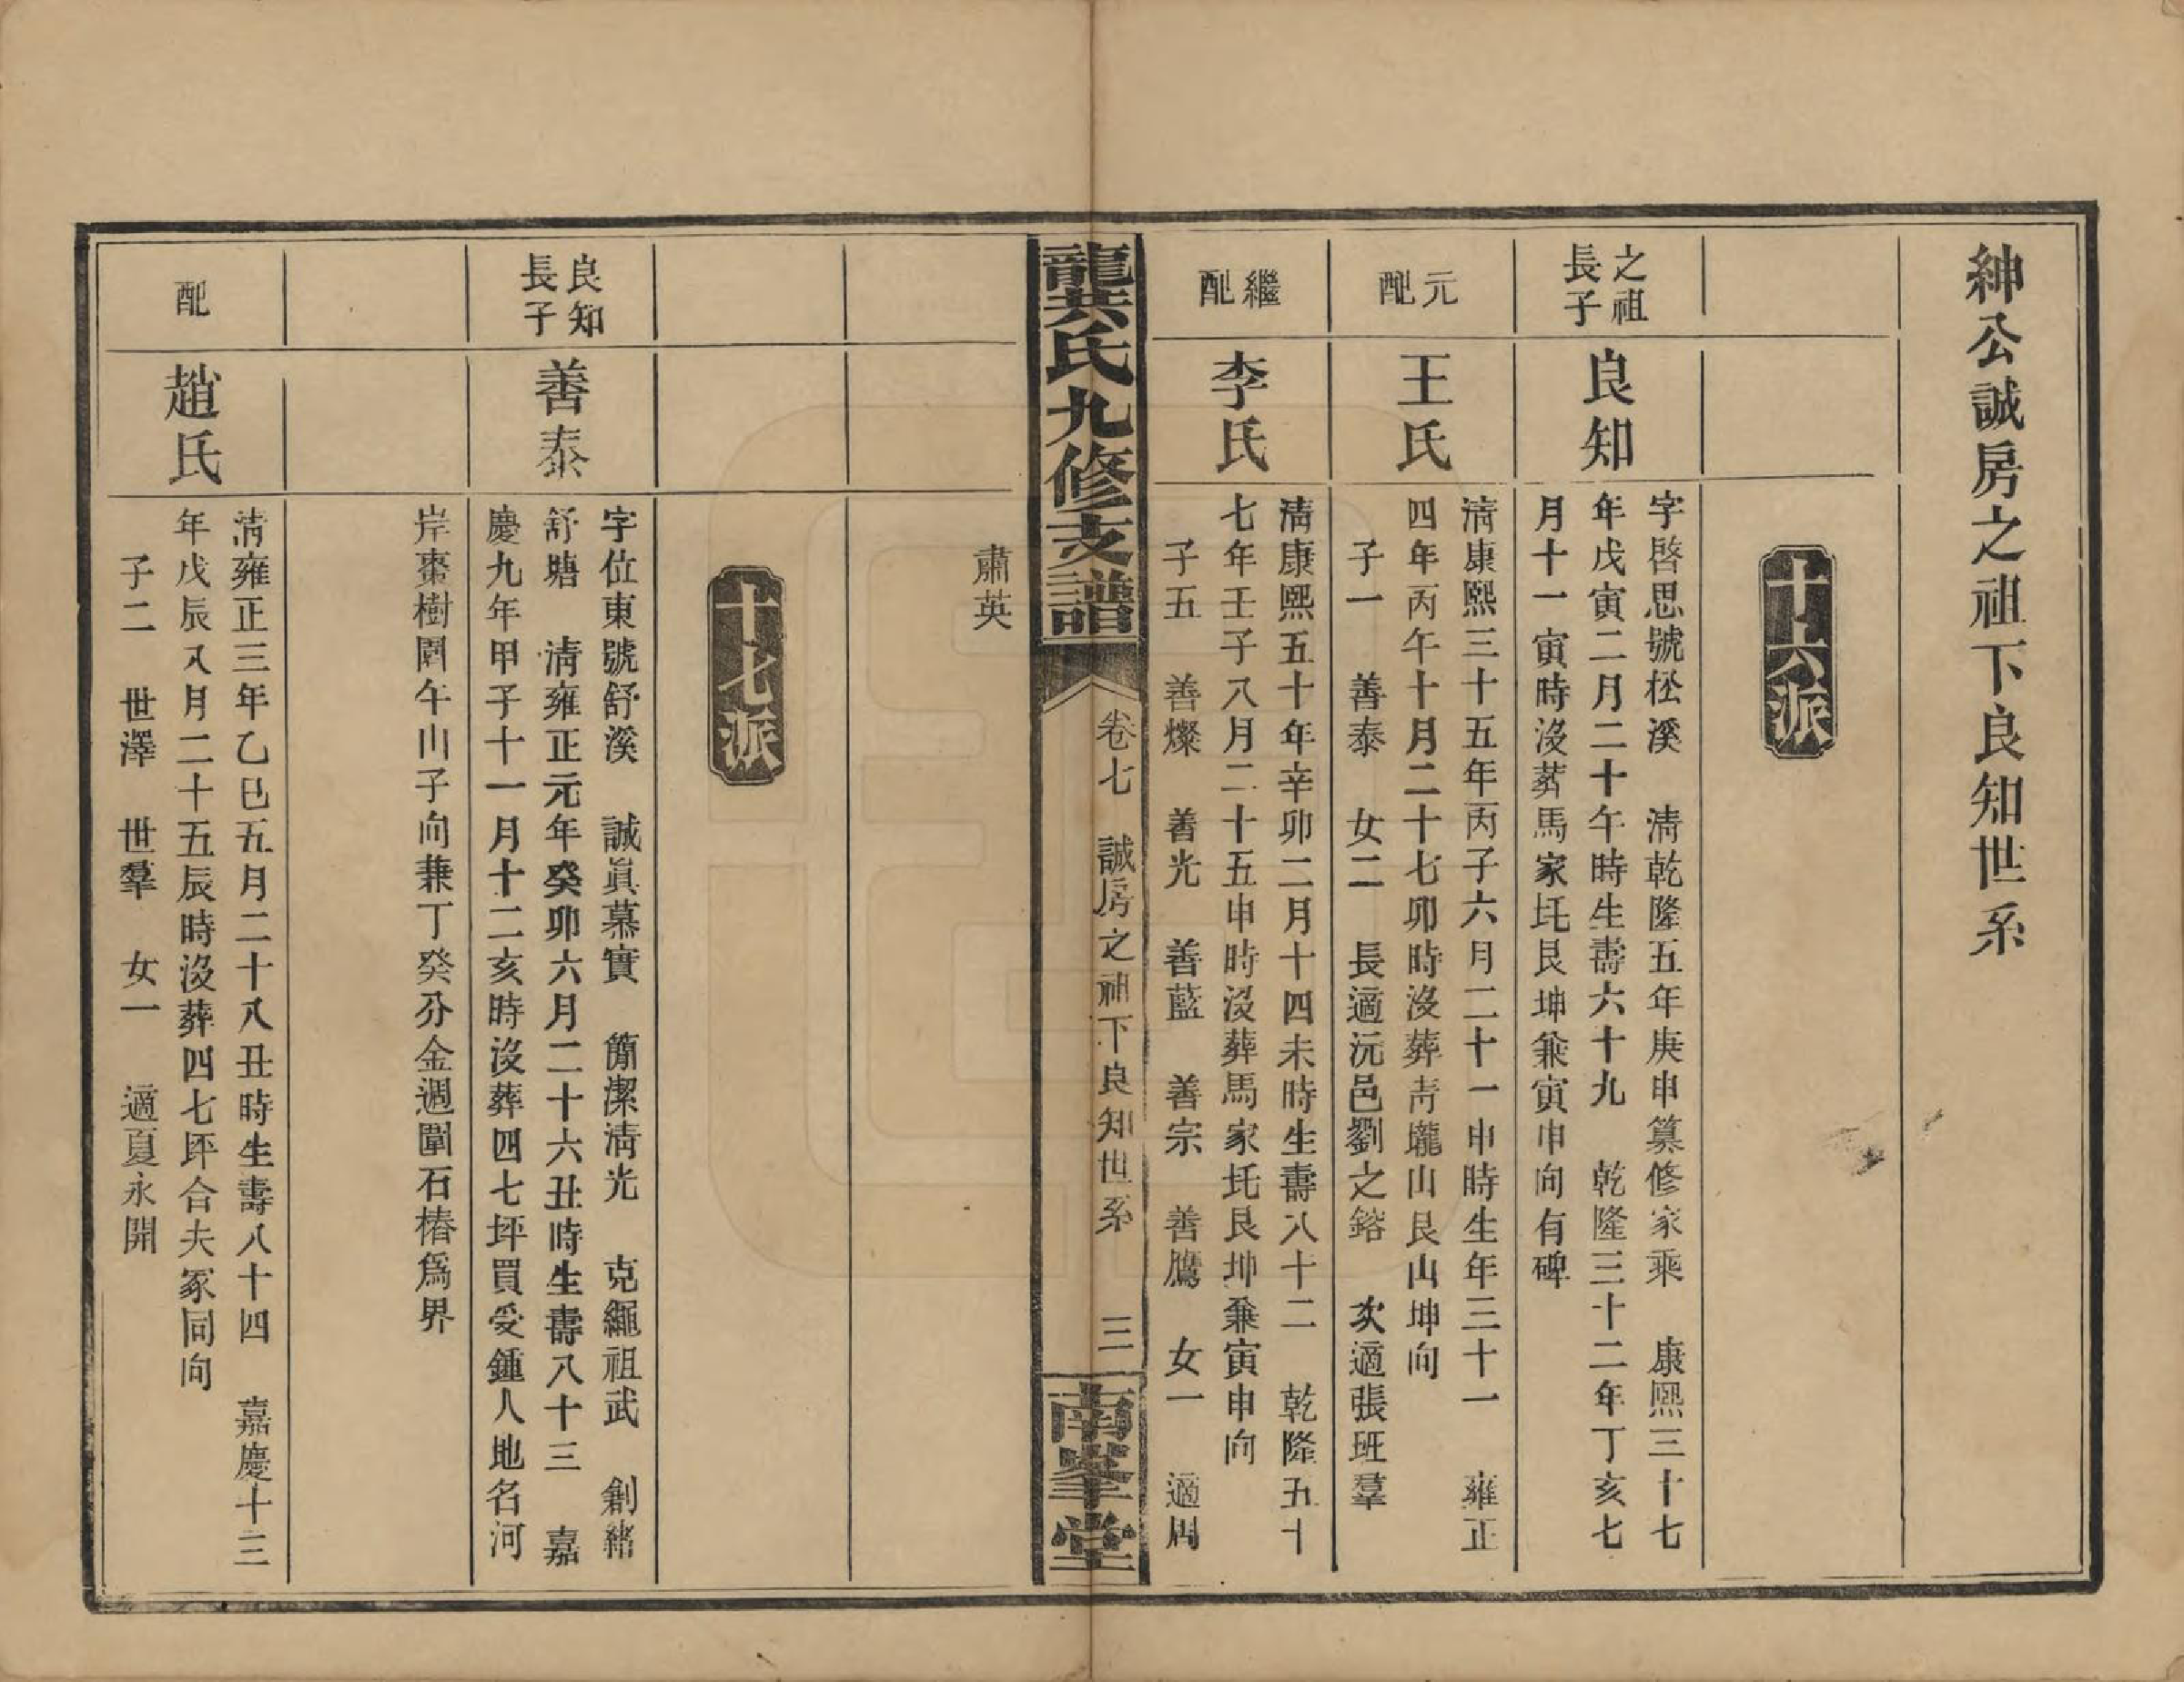 紳公誠房之祖下良知世系
十六派
之祖
長子
良知
字啓思號松溪　清乾隆五年庚申纂修家乘　康熙三十七
年戊寅二月二十午時生壽六十九　乾隆三十二年丁亥七
月十一寅時沒葬馬家圫艮坤兼寅申向有碑
元
配
王氏
清康熙三十五年丙子六月二十一申時生年三十一　雍正
四年丙午十月二十七卯時沒葬靑壠山艮山坤向
子一　善泰　女二　長適沅邑劉之鎔　次適張班羣
繼
配
李氏
清康熙五十年辛卯二月十四未時生壽八十二　乾隆五十
七年壬子八月二十五申時沒葬馬家圫艮坤兼寅申向
子五　善燦　善光　善藍　善宗　善鷹　女一　適周
龍共氏九修支譜
卷七　誠房之祖下良知世系　三
南峯堂
肅英
十七派
良知
長子
善泰
字位東號舒溪　誠眞慕實　簡潔淸光　克繩祖武　創緒
舒塘　清雍正元年癸卯六月二十六丑時生壽八十三　嘉
慶九年甲子十一月十二亥時沒葬四七坪買受鍾人地名河
岸棗樹園午山子向兼丁癸分金週圍石樁爲界
配
趙氏
清雍正三年乙巳五月二十八丑時生壽八十四　嘉慶十三
年戊辰八月二十五辰時沒葬四七坪合夫冢同向
子二　世澤　世羣　女一　適夏永開